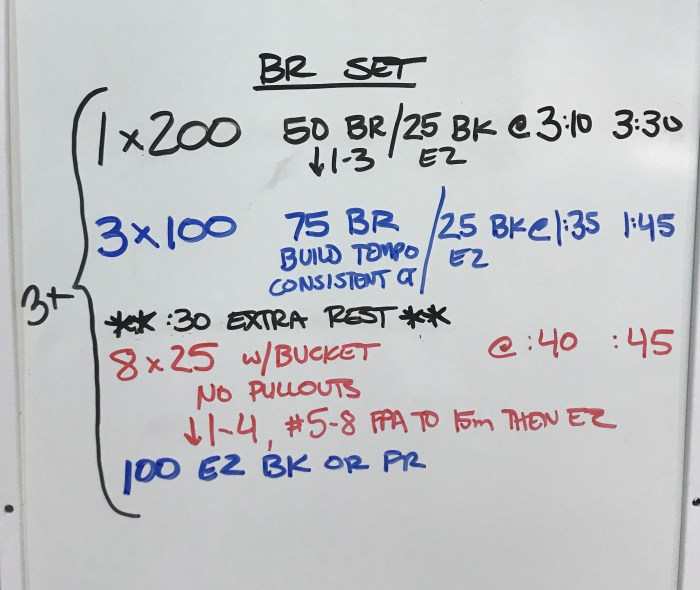 BR SET
1x200 50 BR/25 BK @ 3:10 3:30
↓1-3 EZ
3x100 75 BR/25 BK @ 1:35 1:45
BUILD TEMPO EZ
CONSISTENT CT
3+
** :30 EXTRA REST **
8x25 w/BUCKET @ :40 :45
NO PULLOUTS
↓1-4, #5-8 FPA TO 15m THEN EZ
100 EZ BK OR FR